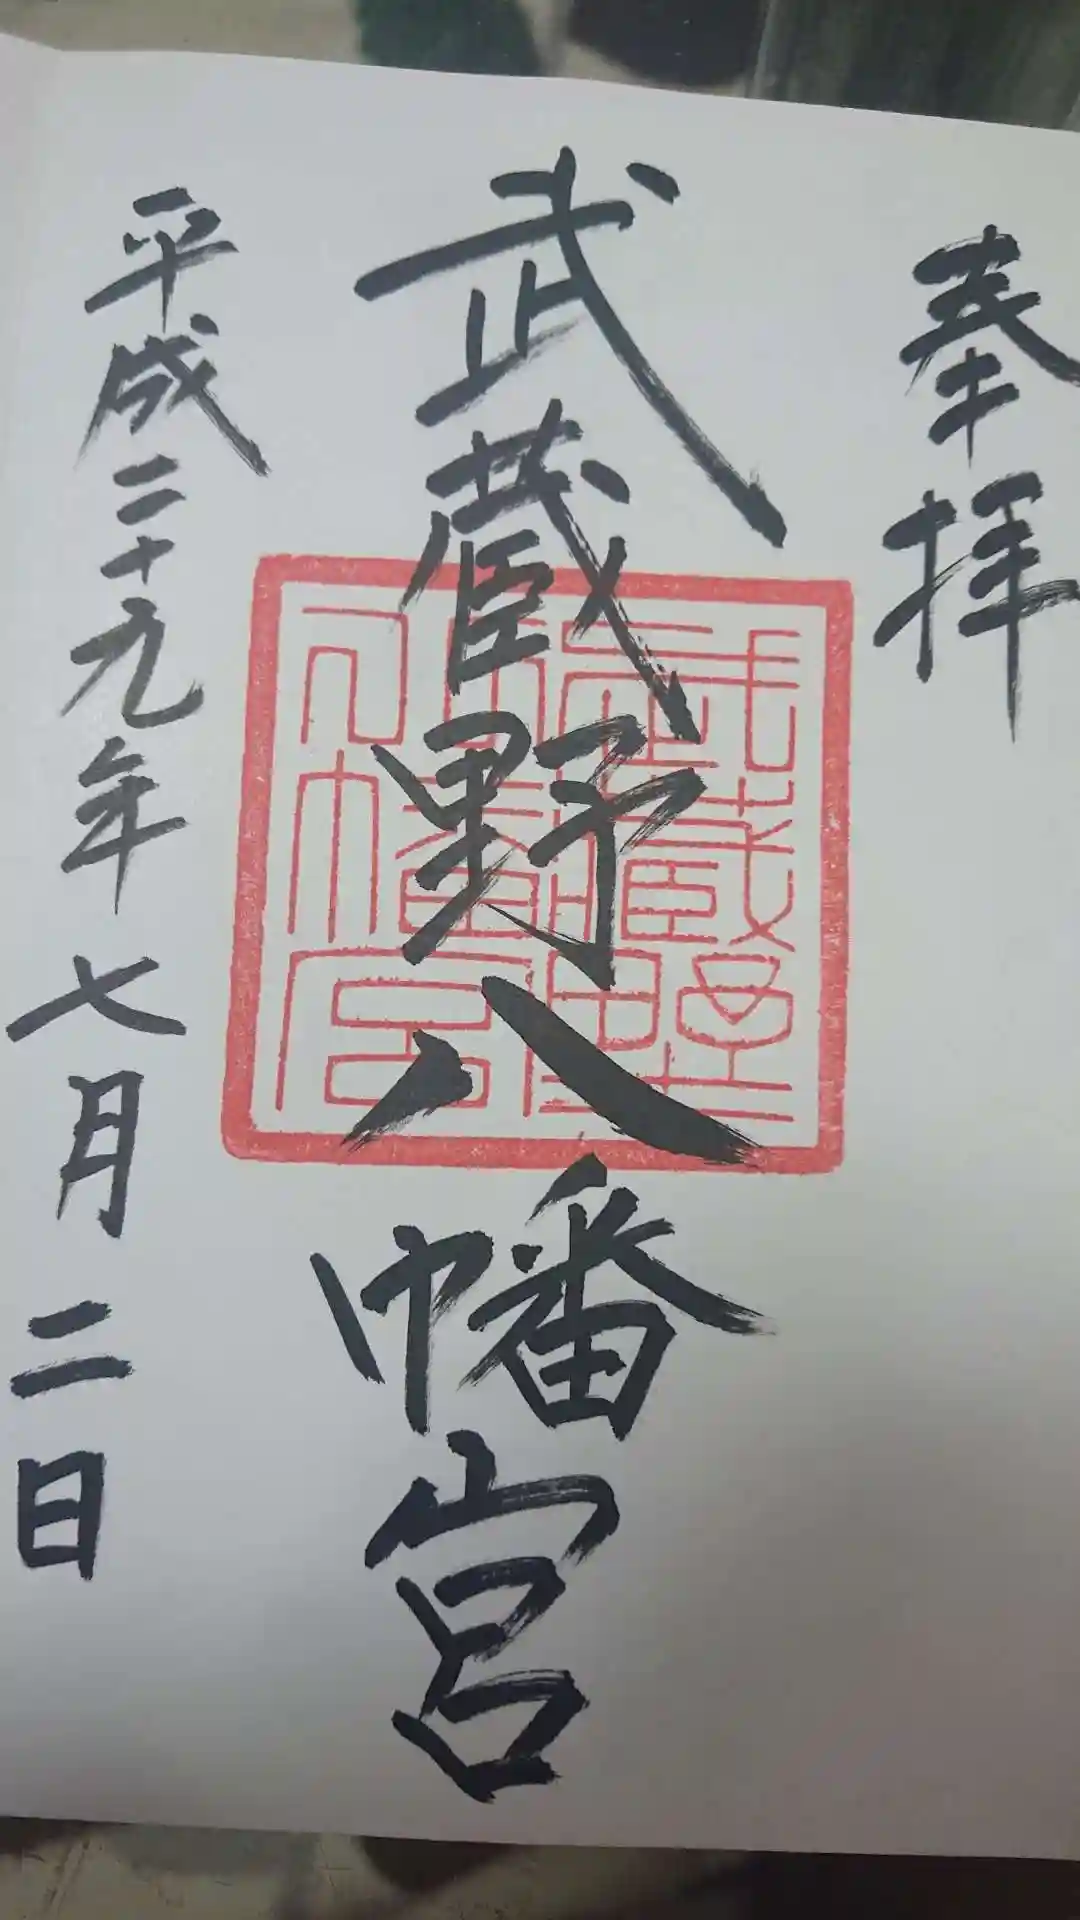 奉拝
武蔵野八幡宮
武蔵野
八幡宮
平成二十九年七月二日